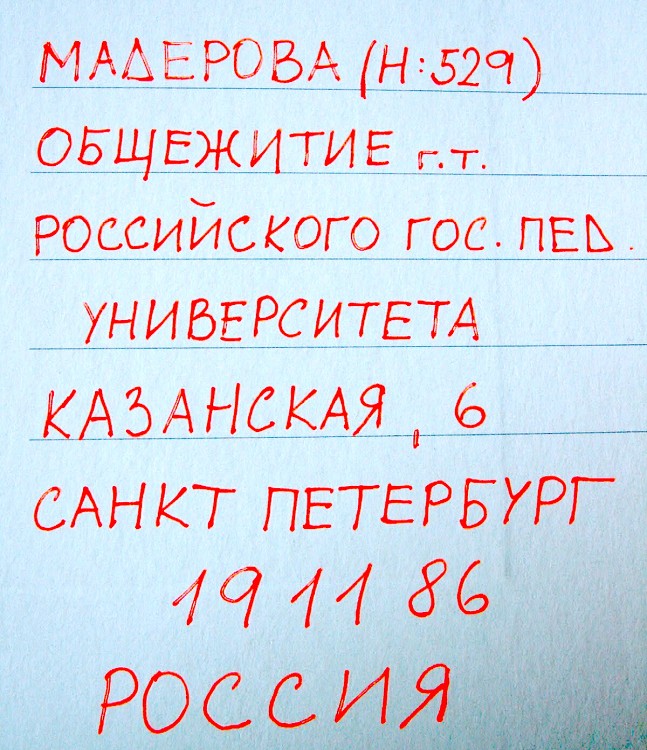 МАДЕРОВА (Н:529)
ОБЩЕЖИТИЕ г.т.
РОССИЙСКОГО ГОС. ПЕД.
УНИВЕРСИТЕТА
КАЗАНСКАЯ, 6
САНКТ ПЕТЕРБУРГ
191186
РОССИЯ